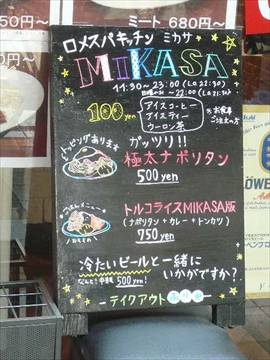 ミート 680円〜
50円〜
ロメスパキッチン ミカサ
MIKASA
11:30〜23:00 (Lo 22:30)
〜22:00 (Lo 21:30)
100yen
アイスコーヒー
アイスティー
ウーロン茶
※お食事
ご注文の方
トッピングあります
ガッツリ!!
極太ナポリタン
500yen
ごはんメニュー
トルコライスMIKASA版
(ナポリタン+カレー+トンカツ)
750yen
冷たいビールと一緒に
いかがですか?
なんと! 中生 500yen!
ーテイクアウト
LÖWE